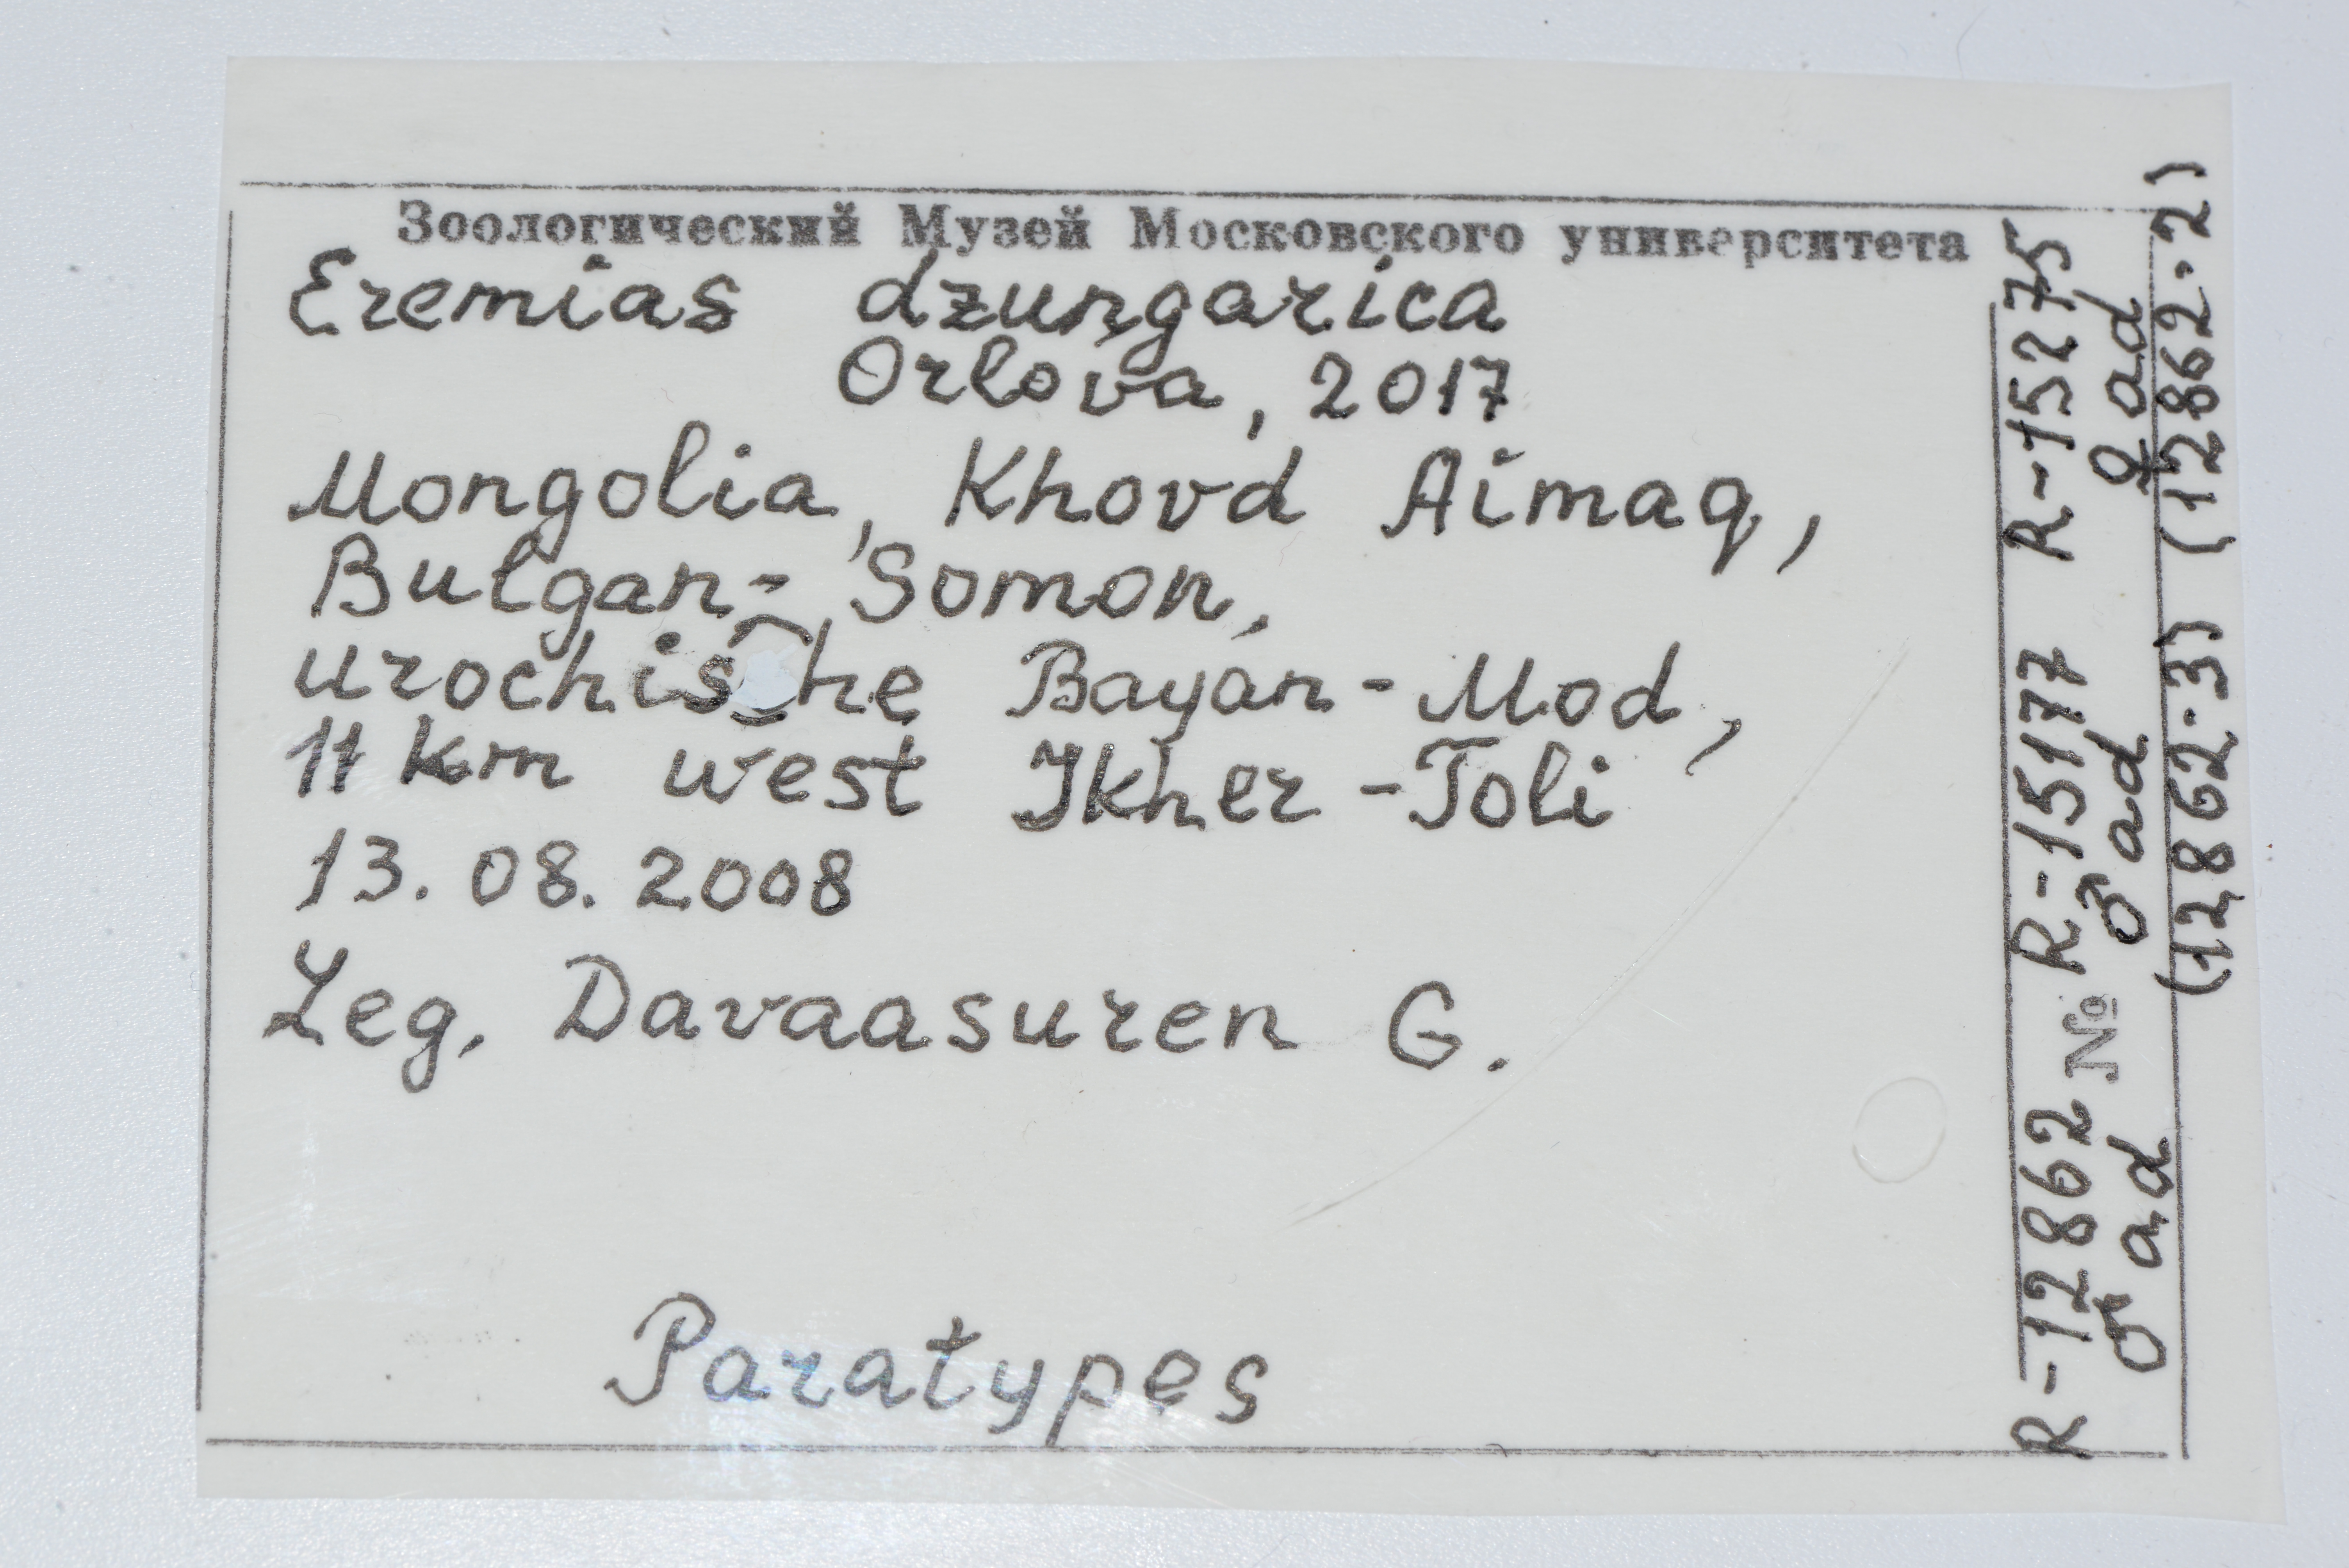 Зоологический Музей Московского университета
Eremias dzungarica
Orlova, 2017
Mongolia, Khovd Aimag,
Bulgan-Somon,
Bayan-Mod,
11 km west Ikher-Toli
13. 08. 2008
Leg. Davaasuren G.
Paratypes
R-12862 № R-15177 R-15275
♂ ad ♂ ad ♀ ad
(12862-3) (12862-2)